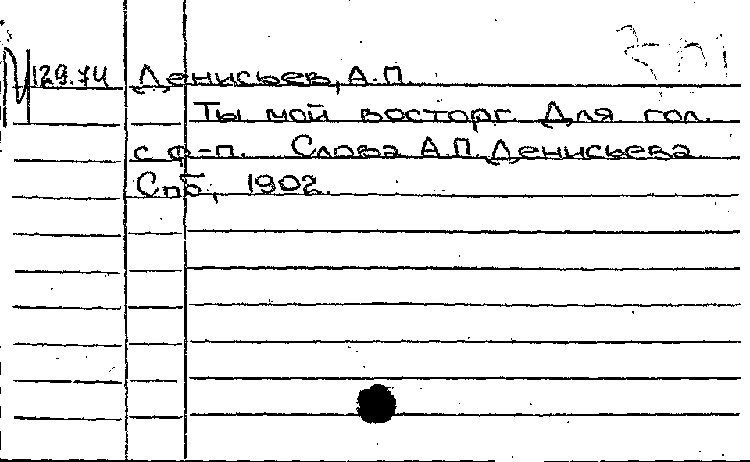 129.74 Денисьев, А.П.
Ты мой восторг. Для гол.
с ф-п. Слова А.П. Денисьева
Спб, 1902.